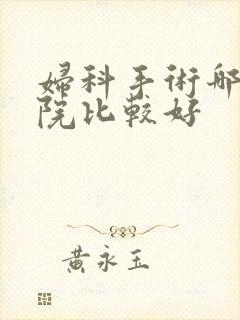 婦科手術哪
院比較好
黃永玉